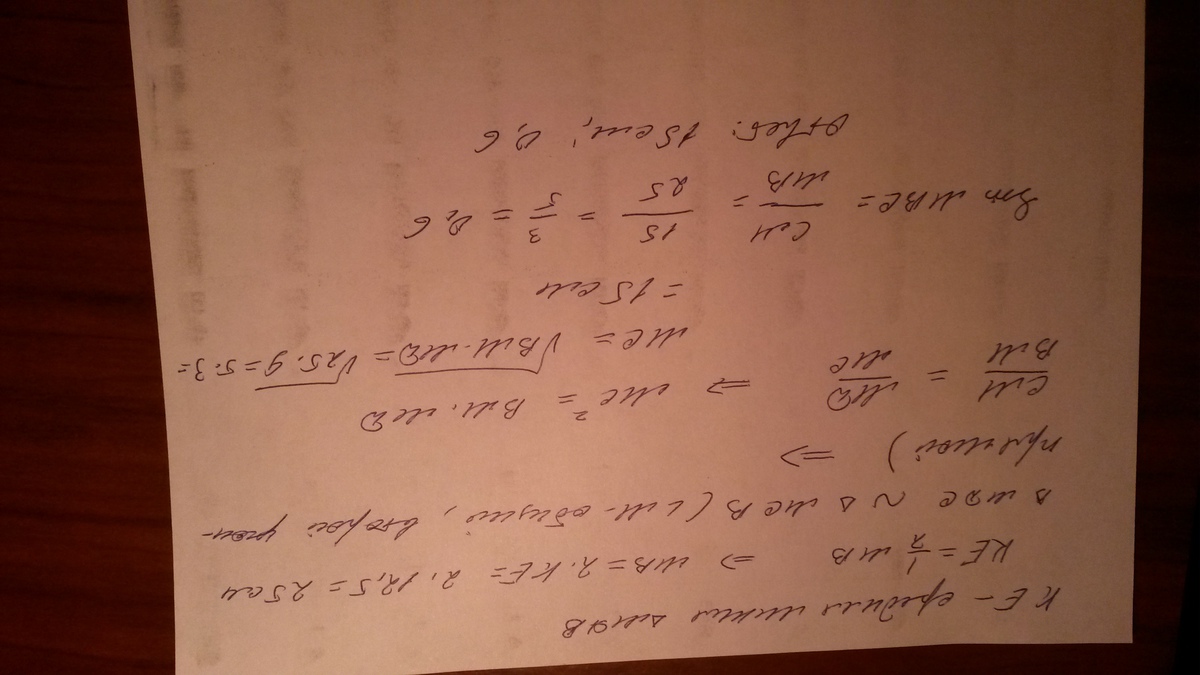 KE - средняя линия
KE = 1/2 MB ⇒ MB = 2·KE = 2·12,5 = 25 см
~ Δ MCB (∠M - общий, второй угол -
прямой) ⇒
CM/BM = MD/MC ⇒ MC² = BM·MD
MC = √BM·MD = √25·9 = 5·3 =
= 15 см
Sin MBC = CM/MB = 15/25 = 3/5 = 0,6
Ответ: 15 см; 0,6